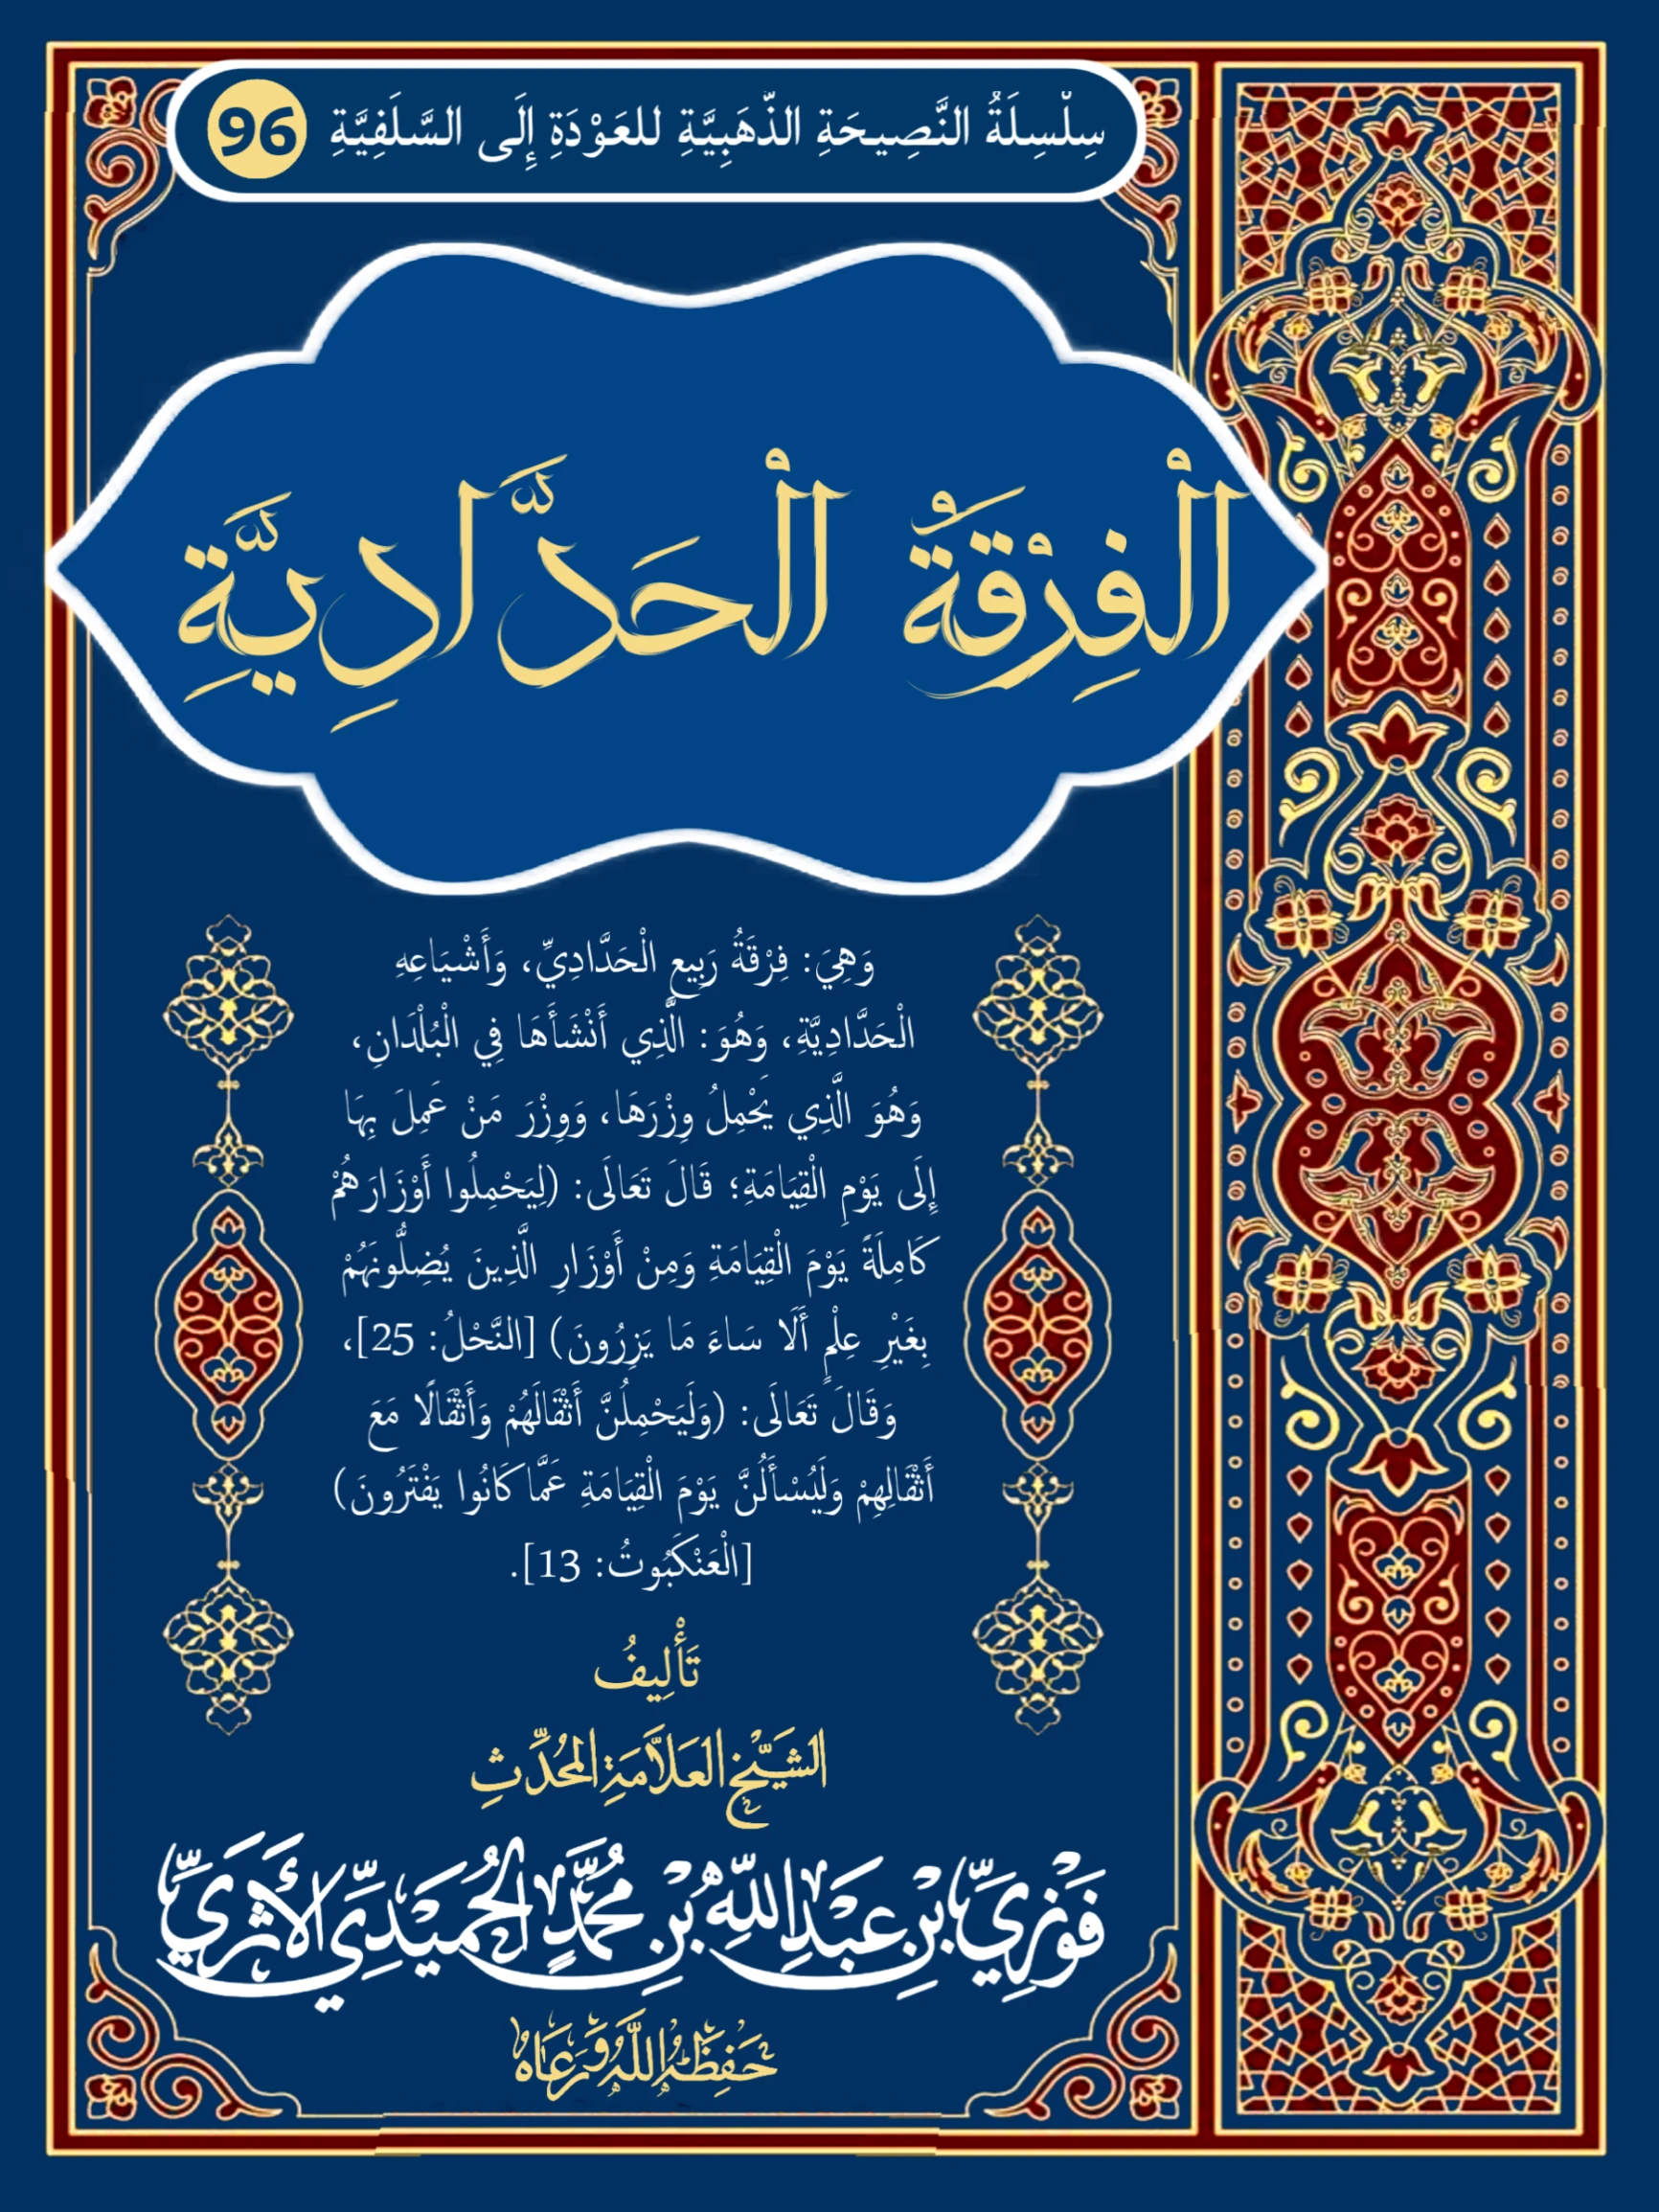 سِلْسِلَةُ النَّصِيحَةِ الذَّهَبِيَّةِ للعَوْدَةِ إِلَى السَّلَفِيَّةِ 96
الْفِرْقَةُ الْحَدَّادِيَّةِ
وَهِيَ: فِرْقَةُ رَبِيعِ الْحَدَّادِيِّ، وَأَشْيَاعِهِ
الْحَدَّادِيَّةِ، وَهُوَ: الَّذِي أَنْشَأَهَا فِي الْبُلْدَانِ،
وَهُوَ الَّذِي يَحْمِلُ وِزْرَهَا، وَوِزْرَ مَنْ عَمِلَ بِهَا
إِلَى يَوْمِ الْقِيَامَةِ؛ قَالَ تَعَالَى: (لِيَحْمِلُوا أَوْزَارَهُمْ
كَامِلَةً يَوْمَ الْقِيَامَةِ وَمِنْ أَوْزَارِ الَّذِينَ يُضِلُّونَهُمْ
بِغَيْرِ عِلْمٍ أَلَا سَاءَ مَا يَزِرُونَ) [النَّحْلُ: 25]،
وَقَالَ تَعَالَى: (وَلَيَحْمِلُنَّ أَثْقَالَهُمْ وَأَثْقَالًا مَعَ
أَثْقَالِهِمْ وَلَيُسْأَلُنَّ يَوْمَ الْقِيَامَةِ عَمَّا كَانُوا يَفْتَرُونَ)
[الْعَنْكَبُوتُ: 13].
تَأْلِيفُ
الشَّيْخِ العَلاَّمَةِ المُحَدِّثِ
فَوْزِيِّ بْنِ عَبْدِ اللَّهِ بْنِ مُحَمَّدٍ الحُمَيْدِيِّ الأَثَرِيِّ
حَفِظَهُ اللَّهُ وَرَعَاهُ